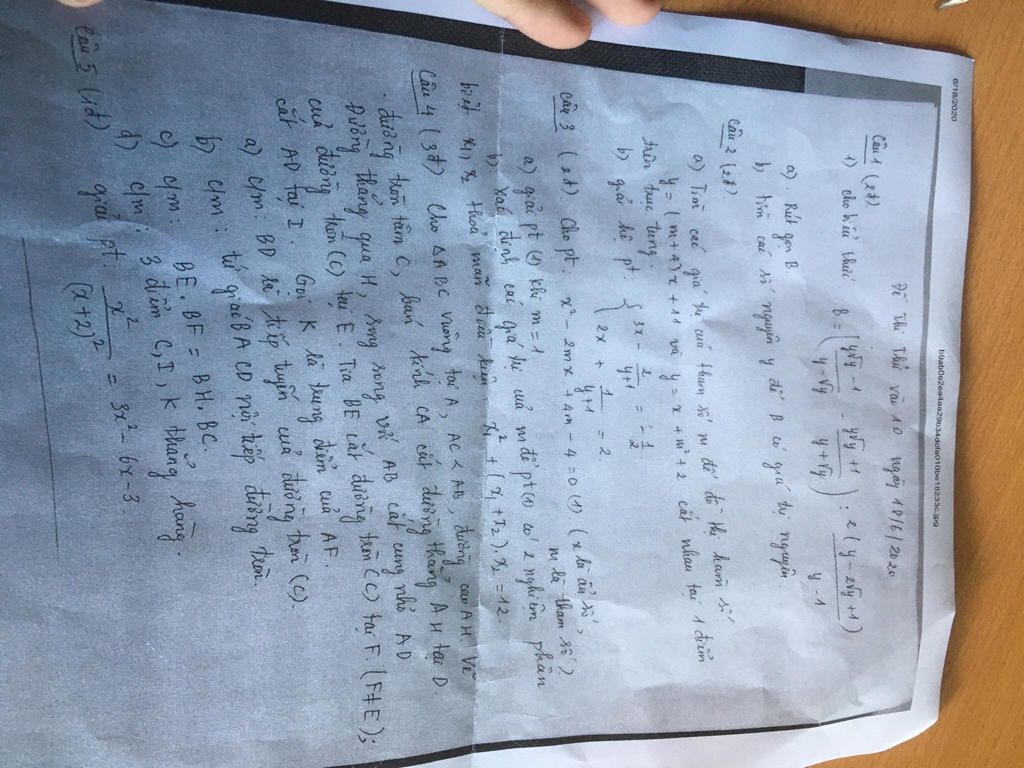 6/18/2020
b9ab0e2ea4aa29b34dcfa010be18233c.jpg
Đề thi thử vào 10 ngày 18/6/2020
Câu 1 (2đ).
1) cho biểu thức B = (y√y - 1 / y - √y - y√y + 1 / y + √y) : 2(y - 2√y + 1) / y - 1
a). Rút gọn B
b) tìm các số nguyên y để B có giá trị nguyên.
Câu 2 (2đ).
a) Tìm các giá trị của tham số m để đồ thị hàm số
y = (m+4)x + 11 và y = x + m² + 2 cắt nhau tại 1 điểm
trên trục tung.
b) giải hệ pt. { 3x - 2/y+1 = -1/2
2x + 1/y+1 = 2
Câu 3 (2đ) Cho pt. x² - 2mx + 4m - 4 = 0 (1). (x là ẩn số,
m là tham số)
a) giải pt (1) khi m = 1
b) xác định các giá trị của m để pt (1) có 2 nghiệm phân
biệt x₁, x₂ thoả mãn điều kiện x₁² + (x₁ + x₂).x₂ = 12
Câu 4 (3đ) Cho ΔABC vuông tại A, AC < AB, đường cao AH. Vẽ
đường tròn tâm C, bán kính CA cắt đường thẳng AH tại D.
Đường thẳng qua H, song song với AB cắt cung nhỏ AD
của đường tròn (C) tại E. Tia BE cắt đường tròn (C) tại F. (F≠E);
cắt AD tại I. Gọi K là trung điểm của AF.
a) c/m BD là tiếp tuyến của đường tròn (C).
b) c/m: tứ giác BACD nội tiếp đường tròn.
c) c/m: BE.BF = BH.BC.
d) c/m: 3 điểm C, I, K thẳng hàng.
Câu 5 (1đ) giải pt: x² / (x+2)² = 3x² - 6x - 3.